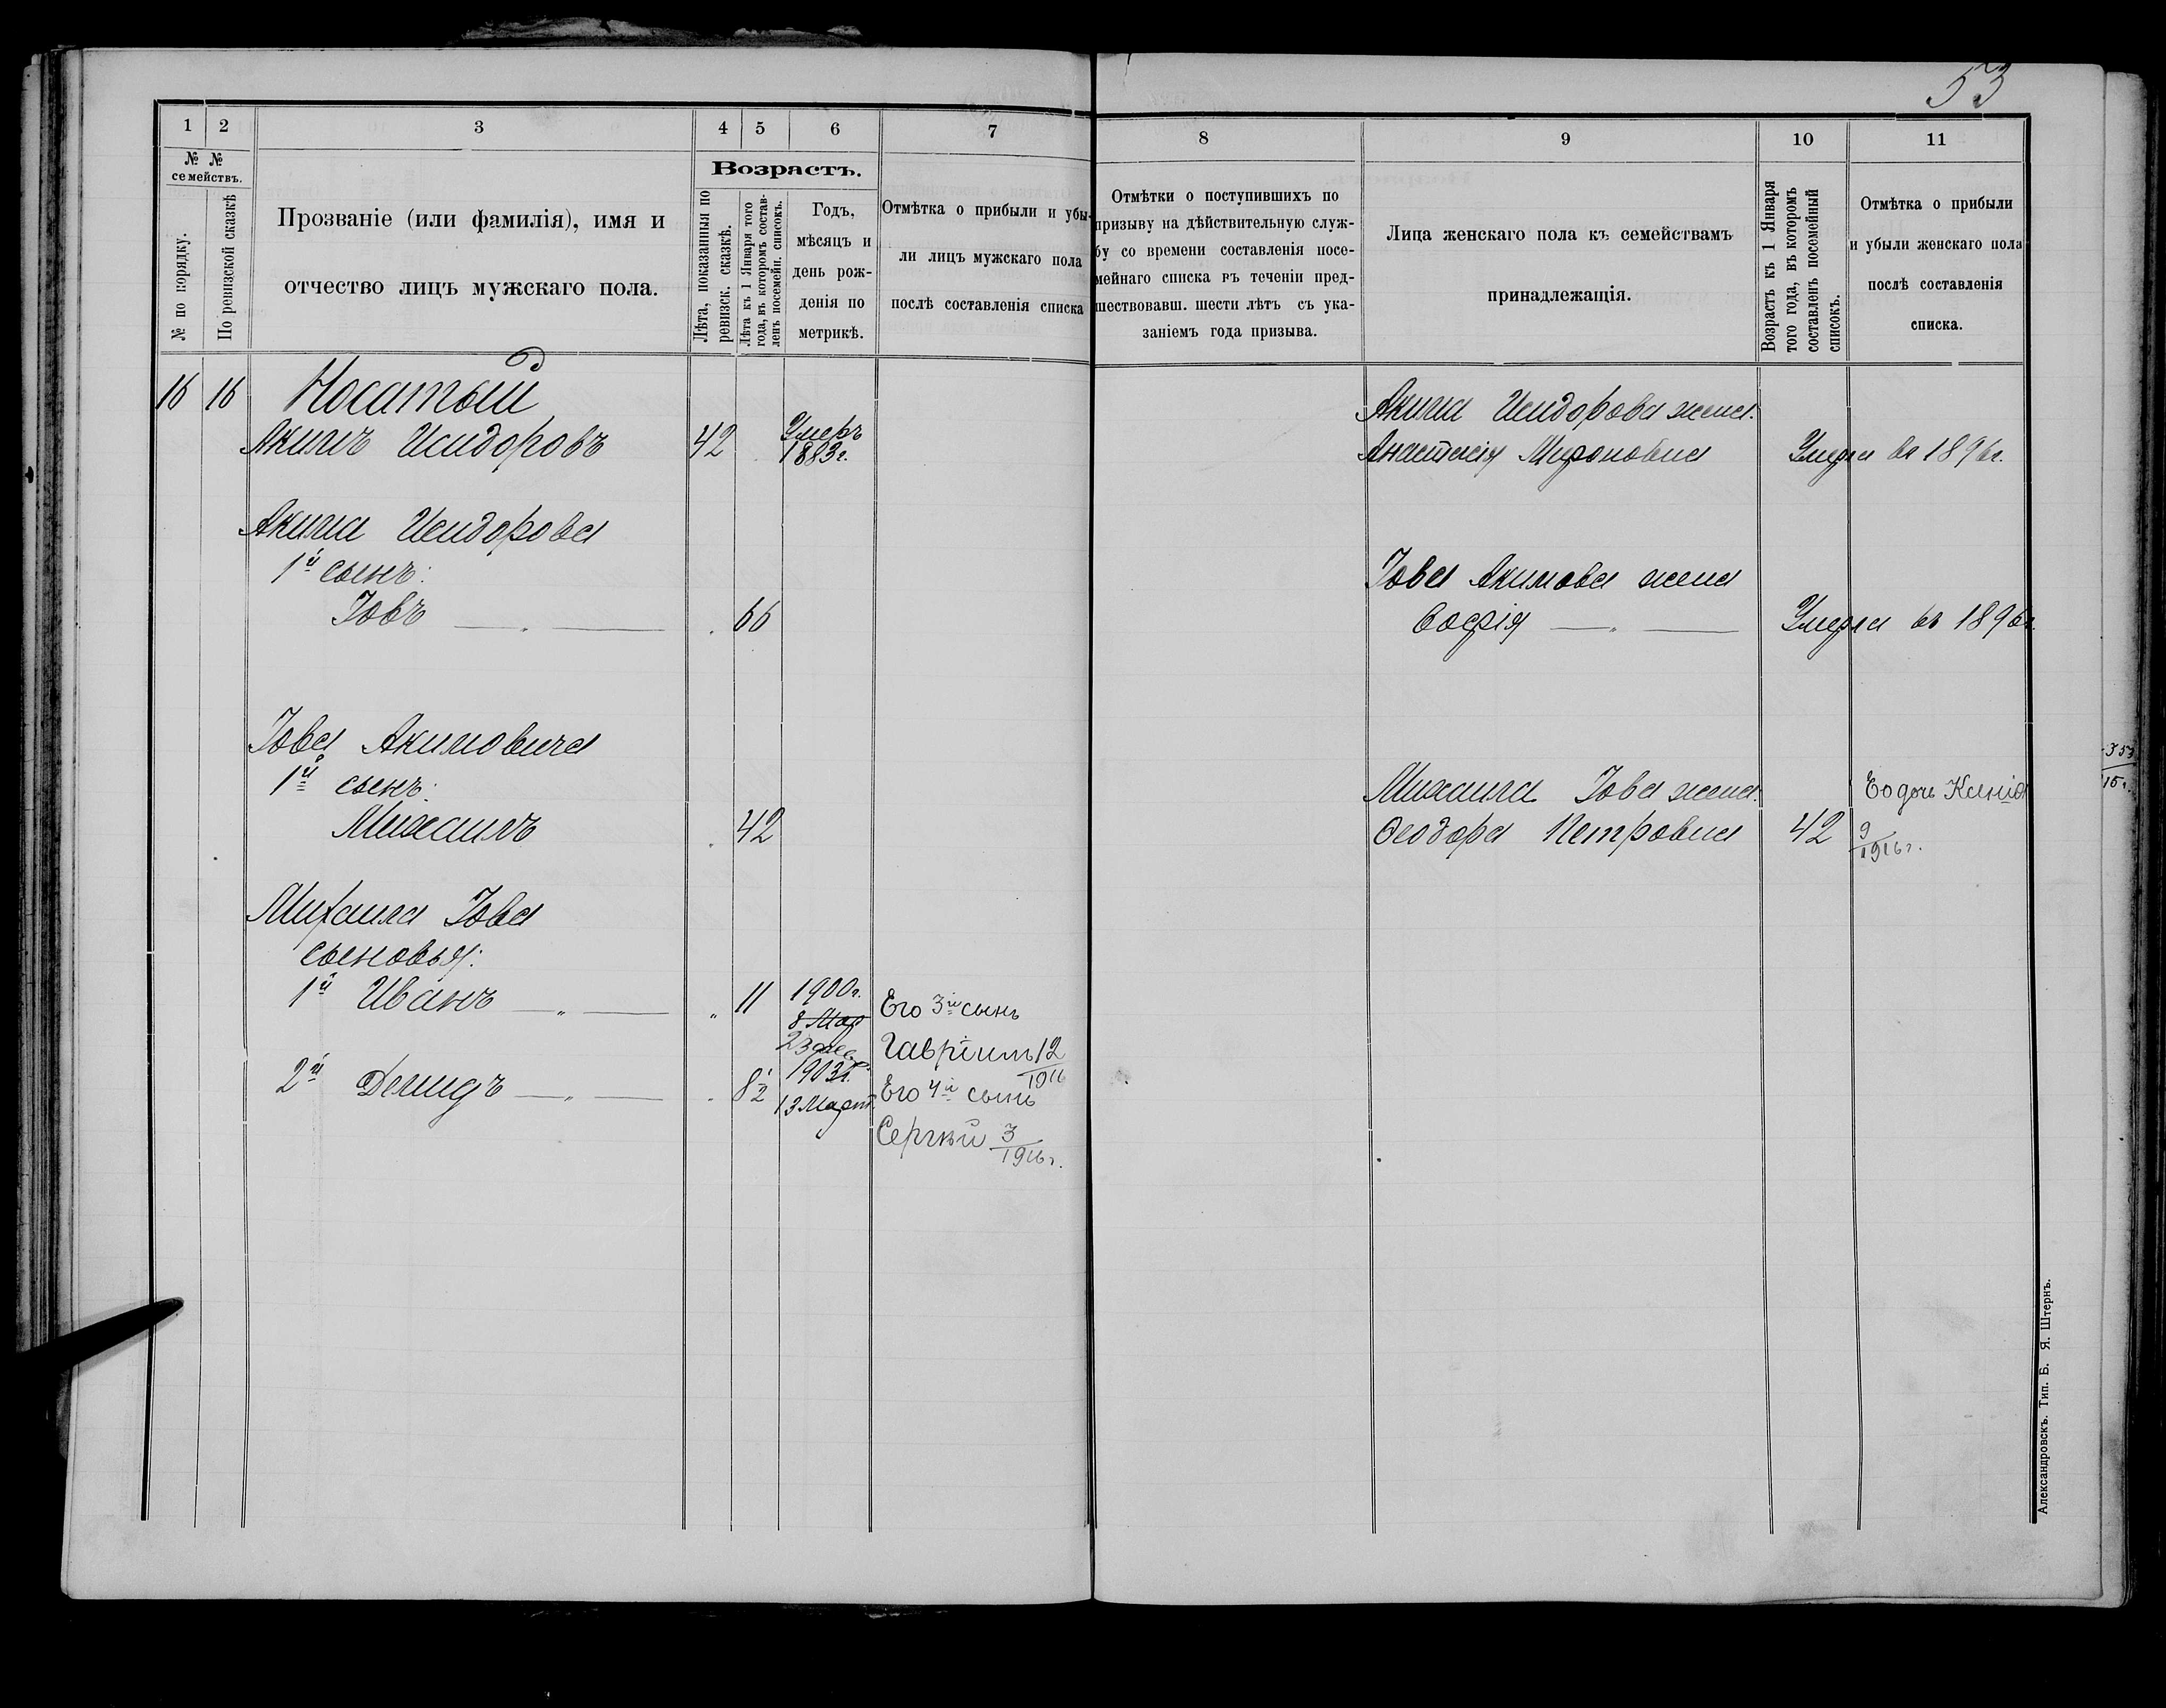 53
1 2 3 4 5 6 7
№ № семействъ.
№ по порядку.
По ревизской сказкѣ
Прозваніе (или фамилія), имя и
отчество лицъ мужскаго пола.
Возрастъ.
Лѣта, показанныя по
ревизск. сказкѣ.
Лѣта къ 1 Января того
года, въ которомъ состав-
ленъ посемейн. списокъ.
Годъ,
мѣсяцъ и
день рож-
денія по
метрикѣ.
Отмѣтка о прибыли и убы-
ли лицъ мужскаго пола
послѣ составленія списка
16 16 Носатый
Акимъ Исидоровъ 42 Умеръ
1883г.
Акима Исидорова
1й сынъ:
Іовъ — „ — . 66
Іова Акимовича
1й сынъ:
Михаилъ . 42
Михаила Іова
сыновья:
1й Иванъ — „ — „ 11 1900г.
8 Мар
23 дек
2й Демидъ — „ — . 8½ 1903г.
13 Март.
Его 3й сынъ
Гавріилъ 12/1916
Его 4й сынъ
Сергѣй 3/1916г.
8 9 10 11
Отмѣтки о поступившихъ по
призыву на дѣйствительную служ-
бу со времени составленія посе-
мейнаго списка въ теченіи пред-
шествовавш. шести лѣтъ съ ука-
заніемъ года призыва.
Лица женскаго пола къ семействамъ
принадлежащія.
Возрастъ къ 1 Января
того года, въ которомъ
составленъ посемейный
списокъ.
Отмѣтка о прибыли
и убыли женскаго пола
послѣ составленія
списка.
Акима Исидорова жена.
Анастасія Мироновна Умерла въ 1896г.
Іова Акимова жена
Софія — „ — Умерла въ 1896г.
Михаила Іова жена.
Ѳеодора Петровна 42
Ео дочь Ксенія
9/1916г.
353
15г.
Александровскъ. Тип. Б. Я. Штернъ.